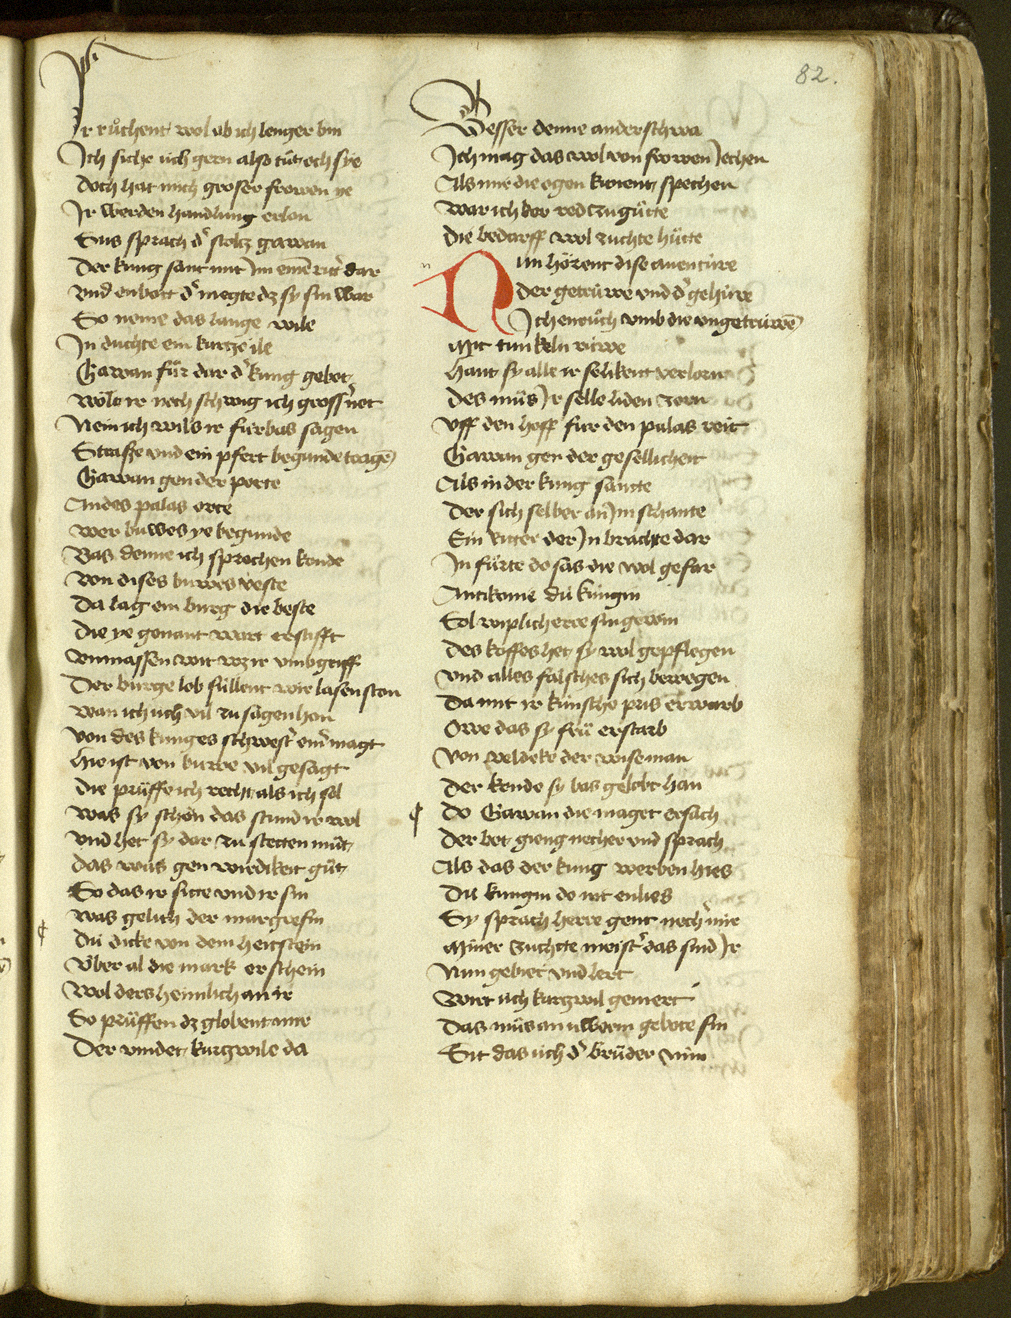 82.
Ir růchent wol ob ich lenger bin
Ich siche üch gern also tůt och sÿe
Doch hat mich groser frowen ye
Ir werden handlung erlan
Sus sprach d' stoltz gawan
Der kung sant mit im einē rit' dar
Vnd enbott d' megte dz sy sin war
So neme das lange wile
In duchte ein kurtze ile
Gawan fůr dar d' kung gebot
Wolt ir noch schwig ich gross' not
Nein ich wils ir fúrbas sagen
Strasse vnd ein pfert begunde tragē
Gawan gen der porte
An des palas orte
Wer buwes ye begunde
Bas denne ich sprechen konde
Von dises buwes veste
Da lag ein burg die beste
Die ye genant wart erstifft
Vnmassen wit wz ir vmbgriff
Der burge lob süllent wir lasen ston
Wan ich üch vil zu sagen han
Von des kunges schwest' ein' magt
Hie ist von buwe vil gesagt
Die prüffe ich recht als ich sol
Was sy schön das stund ir wol
Vnd het sy dar zu stetten můt
Das was gen wirdikeit gůt
So das ir sitte vnd ir sin
Was gelich der margrefin
Dú dicke von dem heitstein
V́ber al die mark erschein
Wol ders heimlich an ir
So prüffen dz globent mir
Der vindet kurtzwile da
Besser denne anderschwa
Ich mag das wol von frowen Iechen
Als mir die ogen kunent spechen
War ich her red zu gůtte
Die bedarff wol zuchte hůtte
Nun hörent dise auenture
der getrüwe vnd d' gehúre
Ich enrůch vmb die vngetrúwē
Mit tunkeln rúwe
Hant sy alle ir selikeit verlorn
Des můs Ir selle liden zorn
Vff den hoff für den palas reit
Gawan gen der gesellicheit
Als in der kung sante
Der sich selber an Im schante
Ein ritter der In brachte dar
In fůrte do sas die wol gefar
Antikonie dú kúngin
Sol wiplich ere sin gewin
Des koffes het sy wol gepflegen
Vnd alles falsches sich bewegen
Da mit ir künsche pris erwarb
Owe das sy frů erstarb
Von veldeke der wise man
Der konde sy bas gelobt han
Do Gawan die maget ersach
Der bot gieng necher vnd sprach
Als das der kung werben hies
Dú kungin do nit enlies
Sy sprach herre gent noch' mir
Miner zuchte meist' das sind Ir
Nun gebiet vnd lert
Wirt üch kurtzwil gemert
Das můs an úwerm gebote sin
Sit das üch d' brůder min